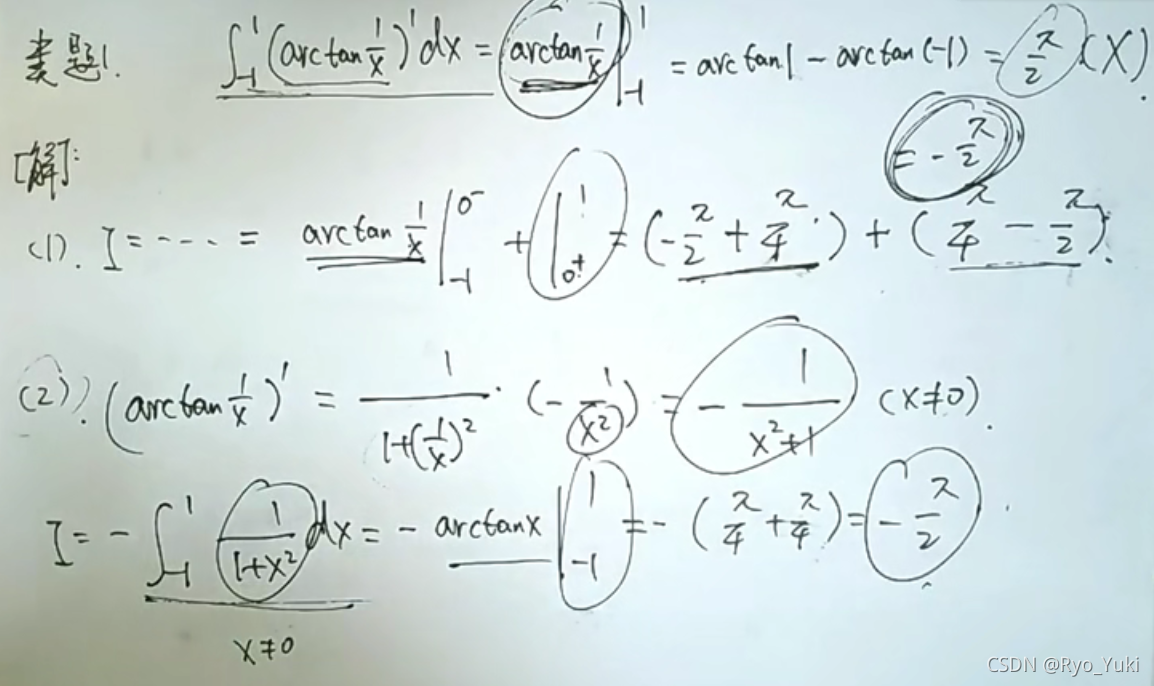 类题1. ∫_{-1}^{1} (arctan 1/x)' dx = arctan 1/x |_{-1}^{1} = arctan1 - arctan(-1) = π/2 (X).
= -π/2
[解]:
(1). I = ---- = arctan 1/x |_{-1}^{0^-} + |_{0^+}^{1} = (-π/2 + π/4) + (π/4 - π/2).
(2). (arctan 1/x)' = 1/(1+(1/x)^2) · (-1/x^2) = -1/(x^2+1) (x≠0).
I = -∫_{-1}^{1} 1/(1+x^2) dx = -arctanx |_{-1}^{1} = -(π/4 + π/4) = -π/2
x≠0
CSDN @Ryo_Yuki